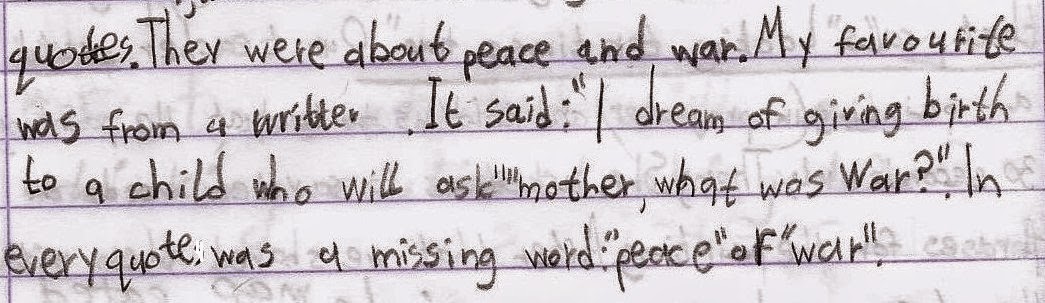 quotes. They were about peace and war. My favourite
was from a writter. It said: "I dream of giving birth
to a child who will ask """mother, what was War?". In
every quote was a missing word: "peace" or "war".